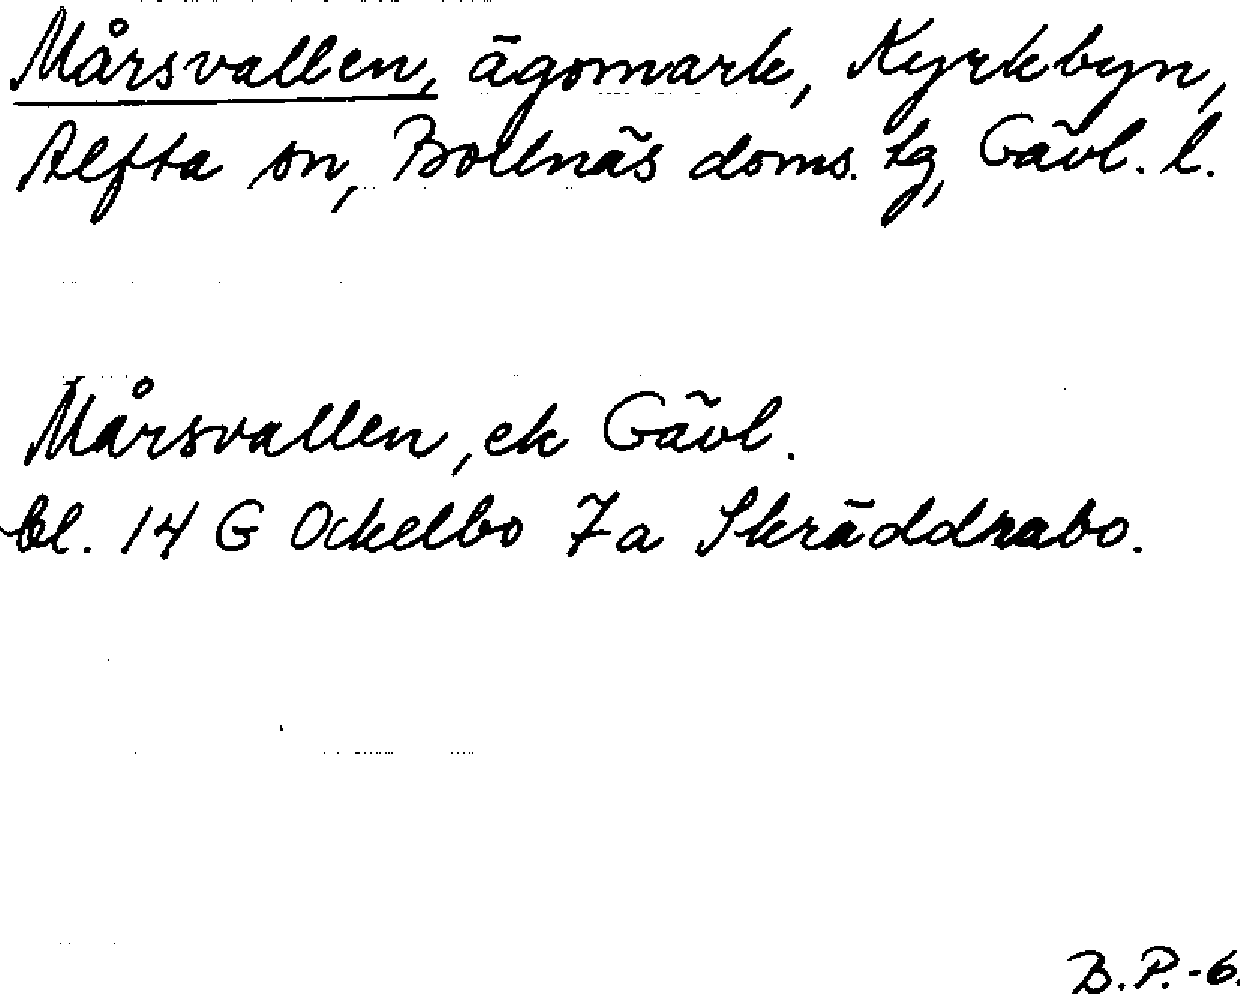 Mårsvallen, ägomark, Kyrkbyn,
Alfta sn, Bollnäs doms. tg, Gävl. l.
Mårsvallen, ek Gävl.
bl. 14 G Ockelbo 7a Skräddrabo.
B.P.-6.